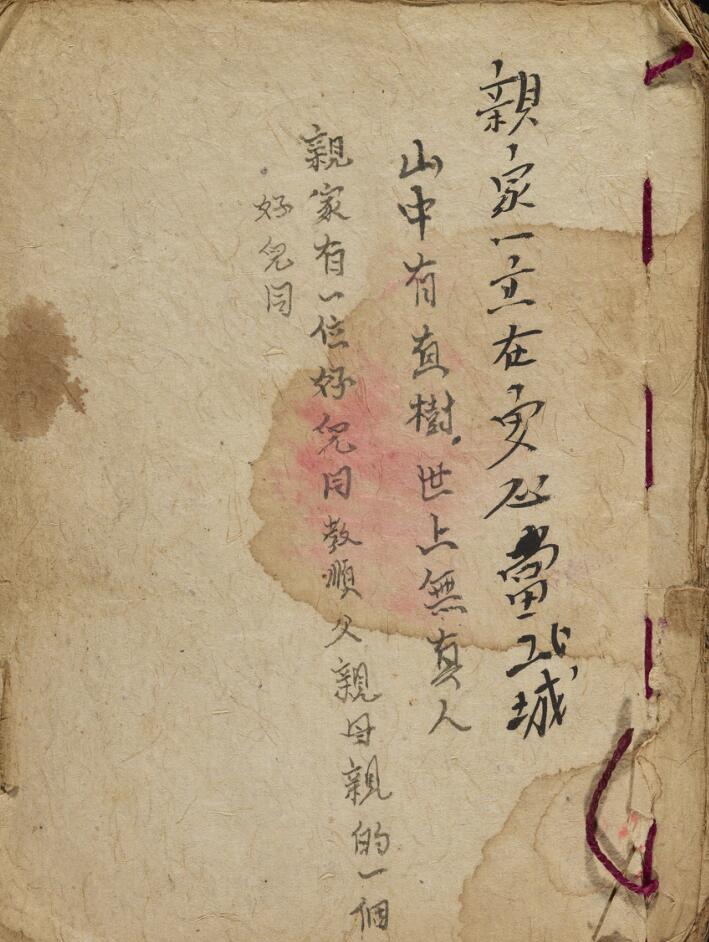 親家一立在更心當城
山中有直樹。世上無真人
親家有一位好兒同教順父親母親的一個
好兒同